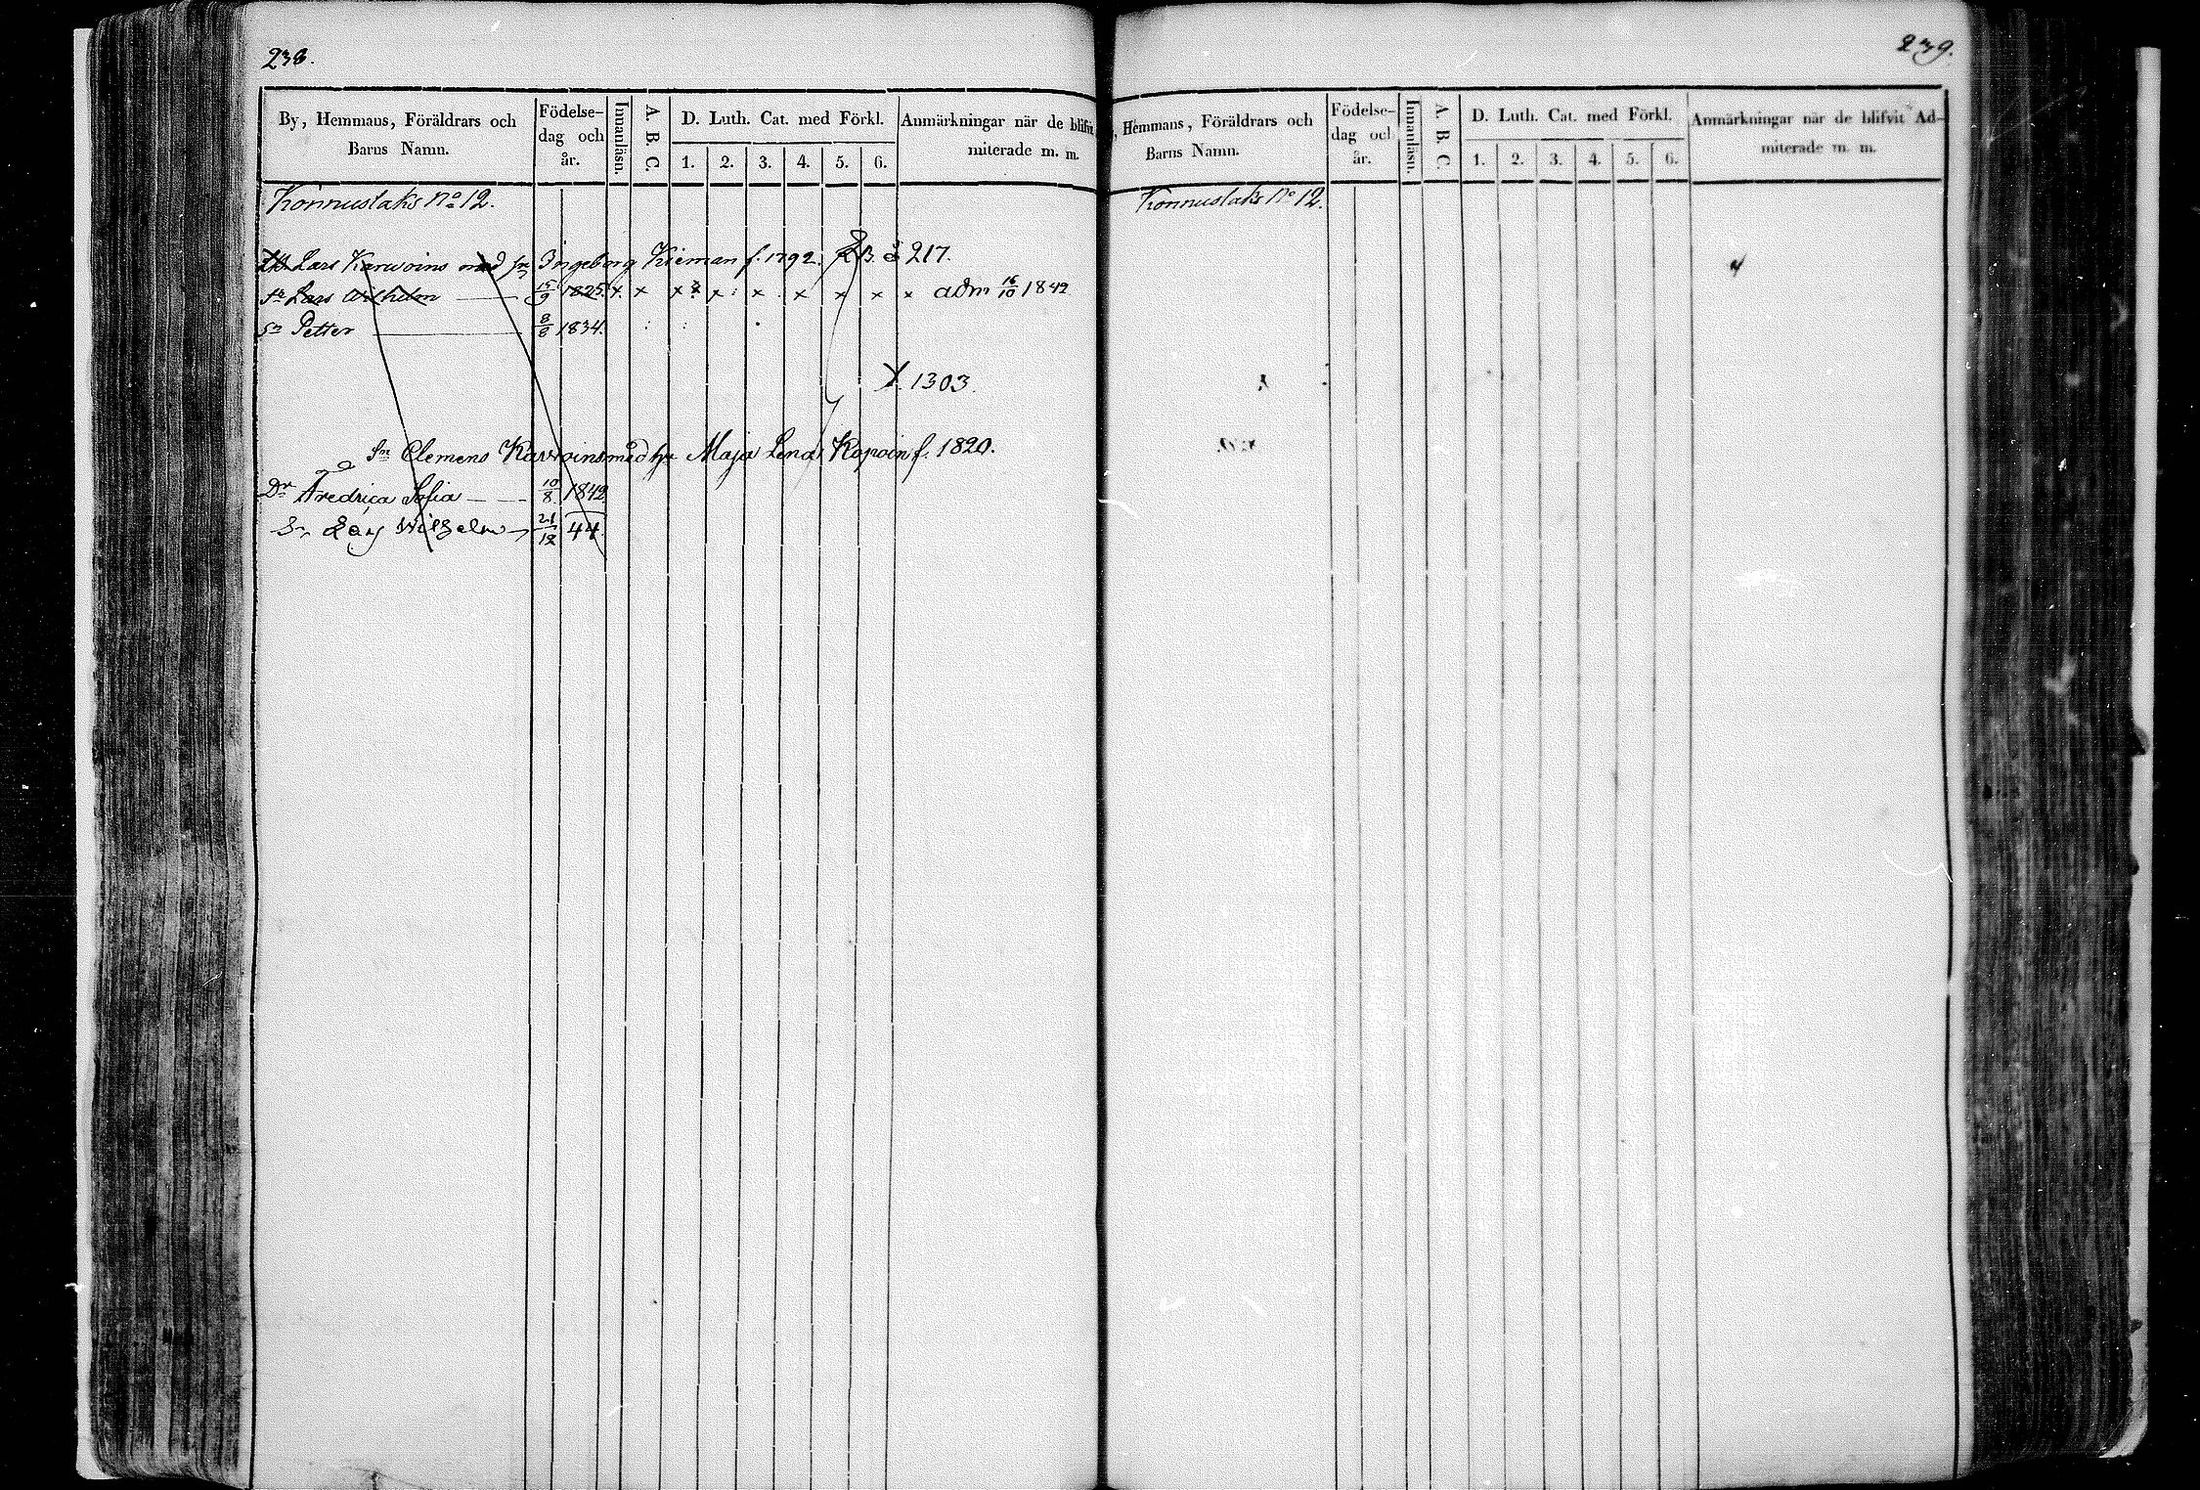 238.
By, Hemmans, Föräldrars och Barns Namn.
Födelse-dag och år.
Innanläsn.
A. B. C.
D. Luth. Cat. med Förkl.
1. 2. 3. 4. 5. 6.
Anmärkningar när de blifvit miterade m. m.
Konnuslaks No 12.
Lars Karvoins med hu Ingeborg Kieman f. 1792. 217.
Sn Lars Wilhelm 15/9 1825. x x x x x x x x x adm 16/10 1842
Sn Petter 8/8 1834.
1303.
Sn Clemens Karvoins med hu Maja Lena Kopoin f. 1820.
Dr Fredrica Sofia 10/8 1842
Sn Lars Wilhelm 21/12 44.
239.
, Hemmans, Föräldrars och Barns Namn.
Födelse-dag och år.
Innanläsn.
A. B. C.
D. Luth. Cat. med Förkl.
1. 2. 3. 4. 5. 6.
Anmärkningar när de blifvit Ad-miterade m. m.
Konnuslaks No 12.